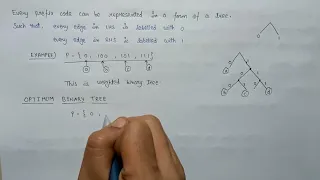 Every prefix code can be represented in a form of a tree.
Such that, every edge in LHS is labelled with 0
every edge in RHS is labelled with 1
EXAMPLE) P = { 0, 100, 101, 111}
This is weighted binary tree
OPTIMUM BINARY TREE
P = { 0, 1